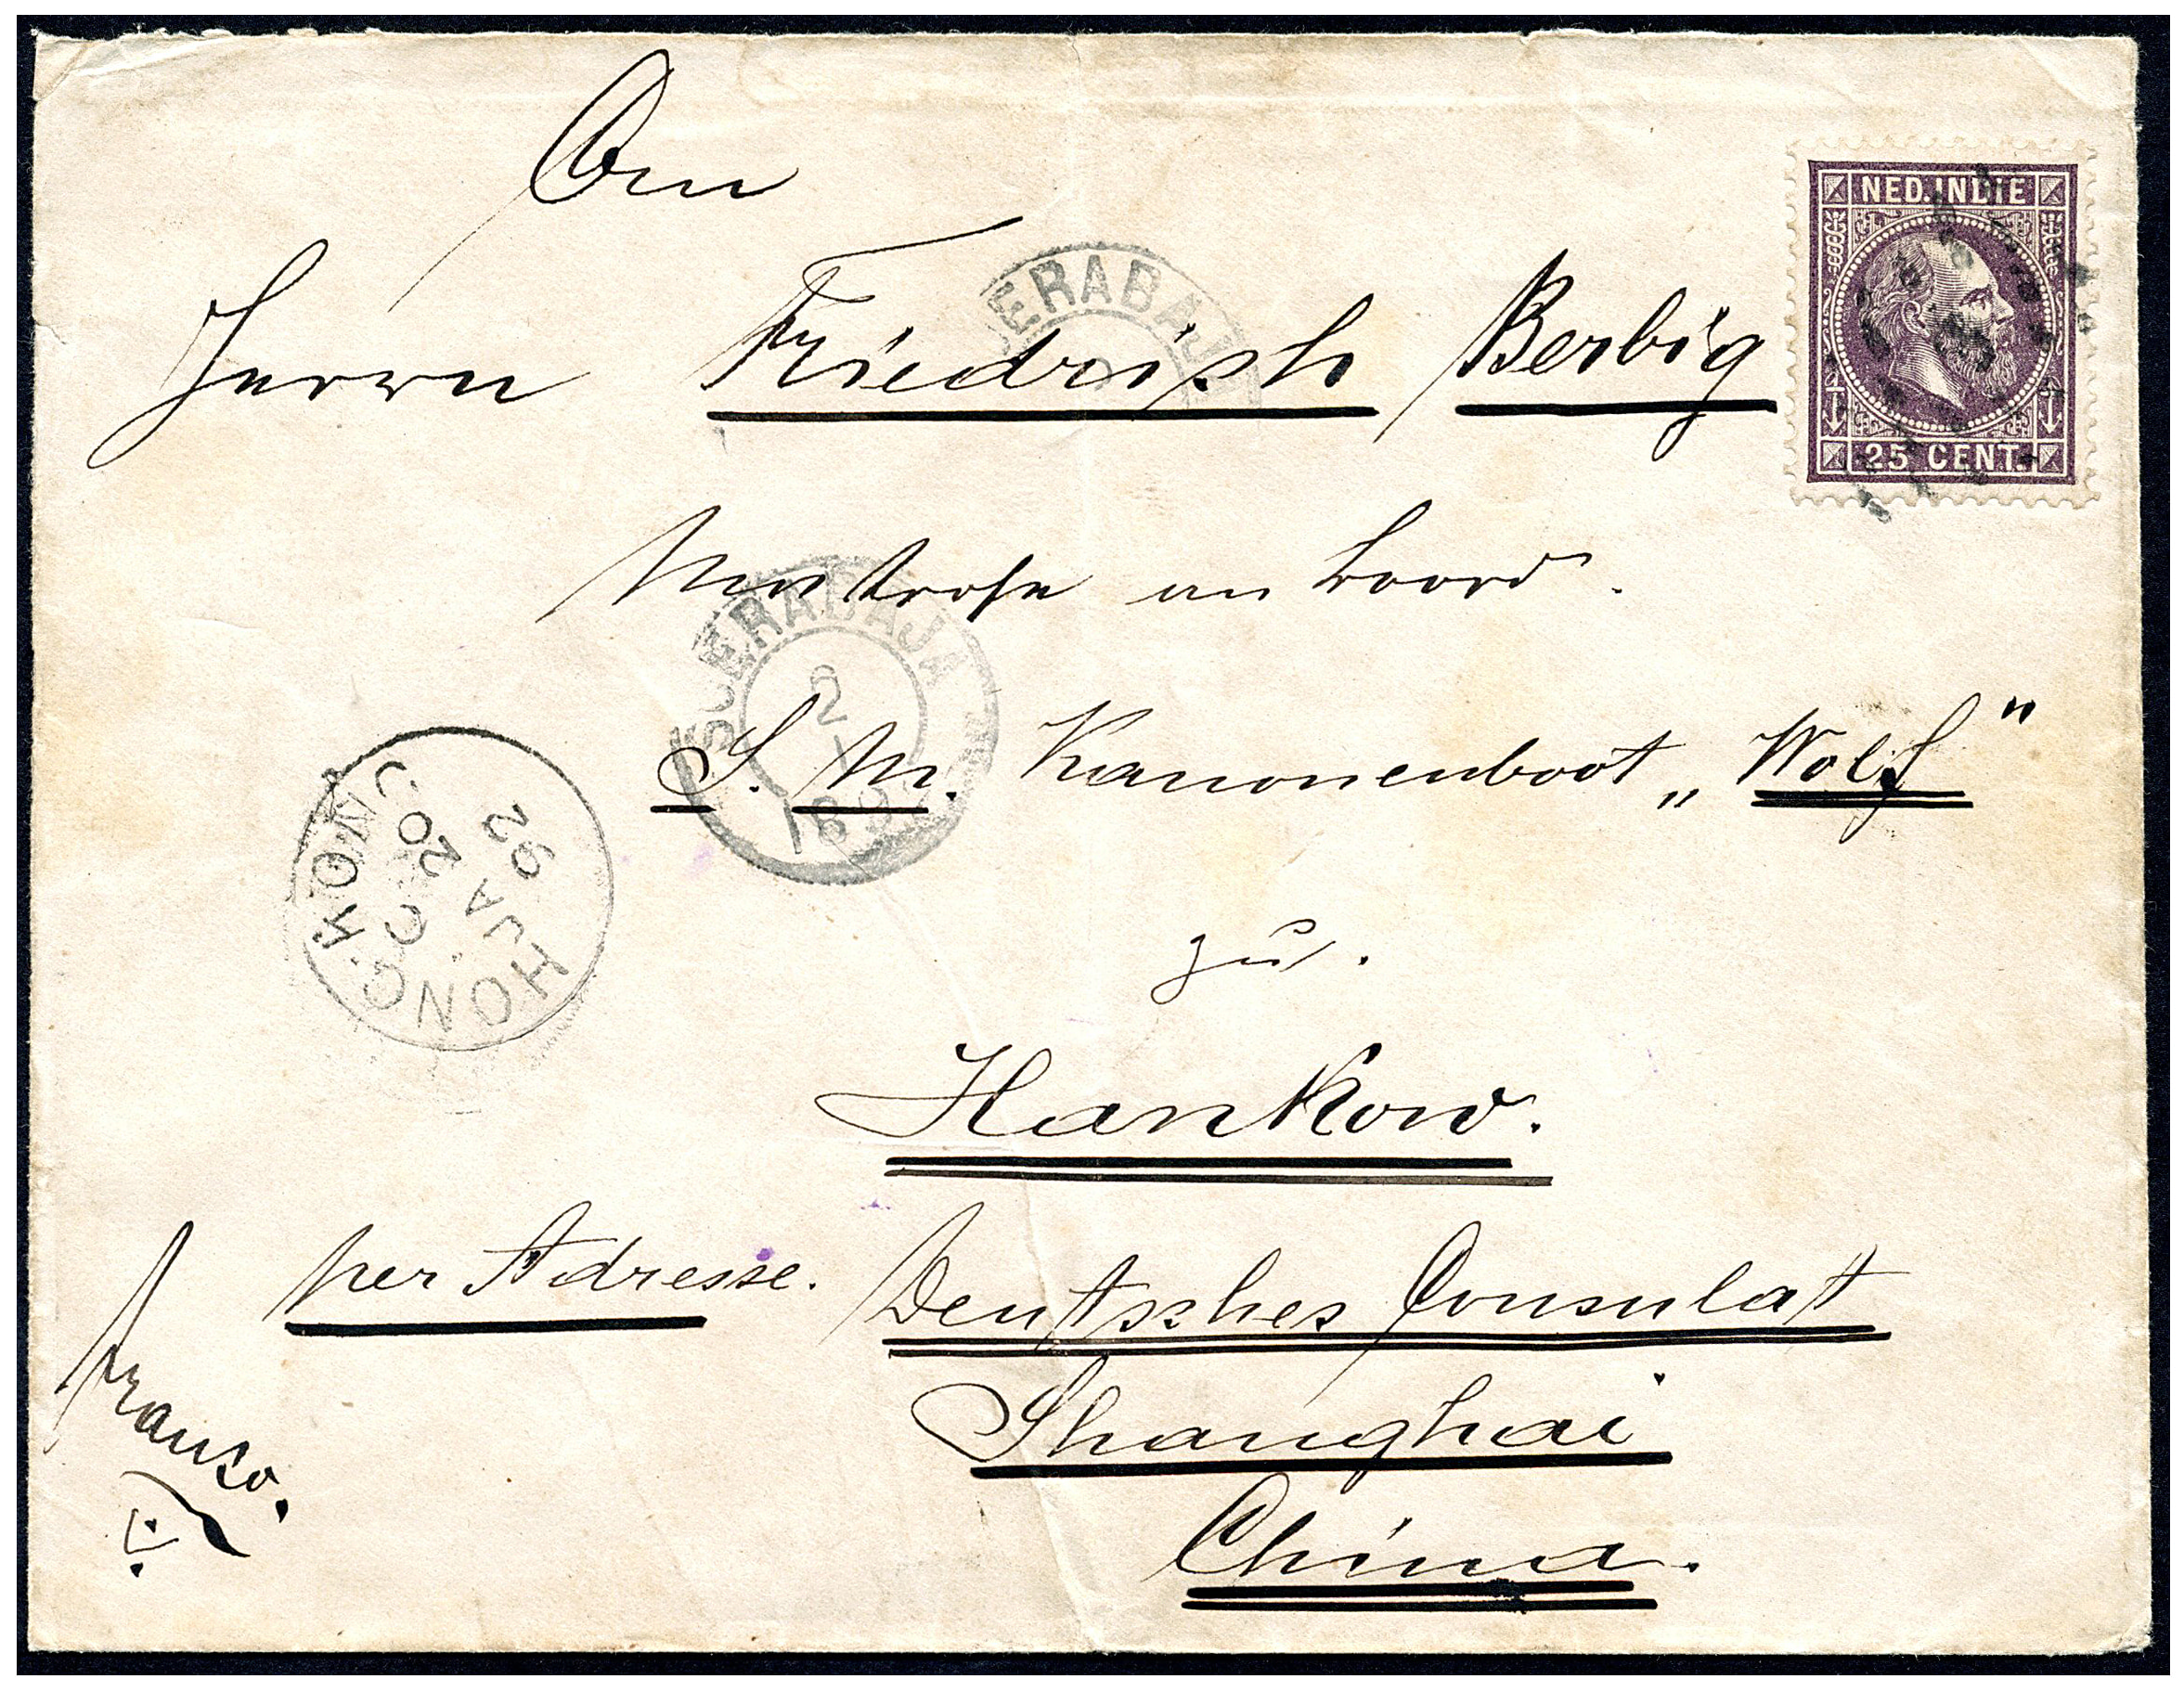 An
NED.INDIE
25 CENT.
Herrn Friedrich Berbig
ERABAJ
Matrose an bord.
SOERABAJA
2
1
189
S. M. Kanonenboot „Wolf"
HONG.KONG
C
JA 20
92
zu.
Hankow.
per Adresse. Deutsches Consulat
Shanghai
China.
Franco.